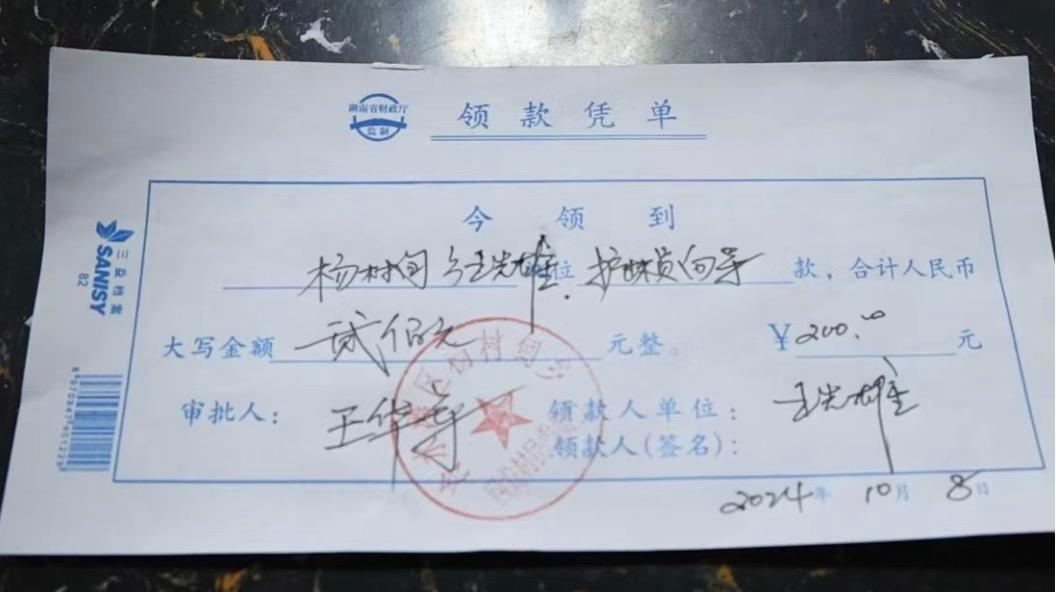 湖南省财政厅
监制
领款凭单
今领到
杨树 位 护 向导 款，合计人民币
大写金额 贰佰元 元整。 ¥ 200.00 元
审批人： 王华 领款人单位：
领款人(签名)：
2024年 10月 8日
三益档案
SANISY
82